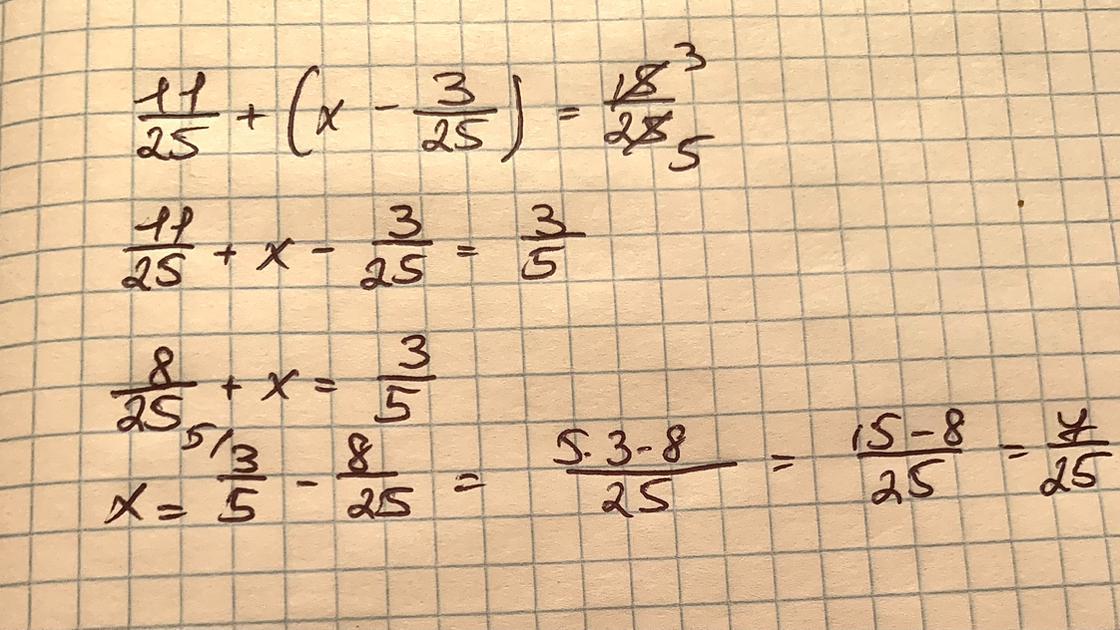 11/25 + (x - 3/25) = 15/25 3/5
11/25 + x - 3/25 = 3/5
8/25 + x = 3/5
x = 5/ 3/5 - 8/25 = 5·3-8/25 = 15-8/25 = 7/25